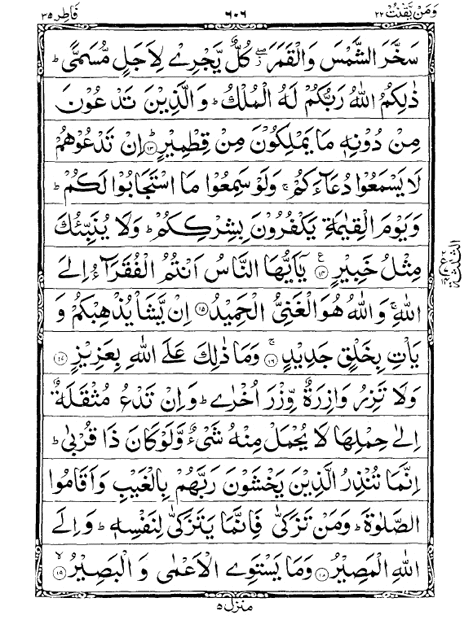 وَمَنْ يَّقْنُتْ ٢٢ ٦٠٦ فَاطِر ٣٥
سَخَّرَ الشَّمْسَ وَالْقَمَرَ ۖ٘ كُلٌّ يَّجْرِيْ لِاَجَلٍ مُّسَمًّى ؕ
ذٰلِكُمُ اللّٰهُ رَبُّكُمْ لَهُ الْمُلْكُ ؕ وَالَّذِيْنَ تَدْعُوْنَ
مِنْ دُوْنِهٖ مَا يَمْلِكُوْنَ مِنْ قِطْمِيْرٍ ؕ ١٣ اِنْ تَدْعُوْهُمْ
لَا يَسْمَعُوْا دُعَآءَكُمْ ۚ وَلَوْ سَمِعُوْا مَا اسْتَجَابُوْا لَكُمْ ؕ
وَيَوْمَ الْقِيٰمَةِ يَكْفُرُوْنَ بِشِرْكِكُمْ ؕ وَلَا يُنَبِّئُكَ
مِثْلُ خَبِيْرٍ ١٤ ع يٰۤاَيُّهَا النَّاسُ اَنْتُمُ الْفُقَرَآءُ اِلَى
اللّٰهِ ۚ وَاللّٰهُ هُوَ الْغَنِيُّ الْحَمِيْدُ ١٥ اِنْ يَّشَاْ يُذْهِبْكُمْ وَ
يَاْتِ بِخَلْقٍ جَدِيْدٍ ۚ ١٦ وَمَا ذٰلِكَ عَلَى اللّٰهِ بِعَزِيْزٍ ١٧
وَلَا تَزِرُ وَازِرَةٌ وِّزْرَ اُخْرٰى ؕ وَاِنْ تَدْعُ مُثْقَلَةٌ
اِلٰى حِمْلِهَا لَا يُحْمَلْ مِنْهُ شَيْءٌ وَّلَوْ كَانَ ذَا قُرْبٰى ؕ
اِنَّمَا تُنْذِرُ الَّذِيْنَ يَخْشَوْنَ رَبَّهُمْ بِالْغَيْبِ وَاَقَامُوا
الصَّلٰوةَ ؕ وَمَنْ تَزَكّٰى فَاِنَّمَا يَتَزَكّٰى لِنَفْسِهٖ ؕ وَاِلَى
اللّٰهِ الْمَصِيْرُ ١٨ وَمَا يَسْتَوِي الْاَعْمٰى وَالْبَصِيْرُ ۙ ١٩
منزل ٥